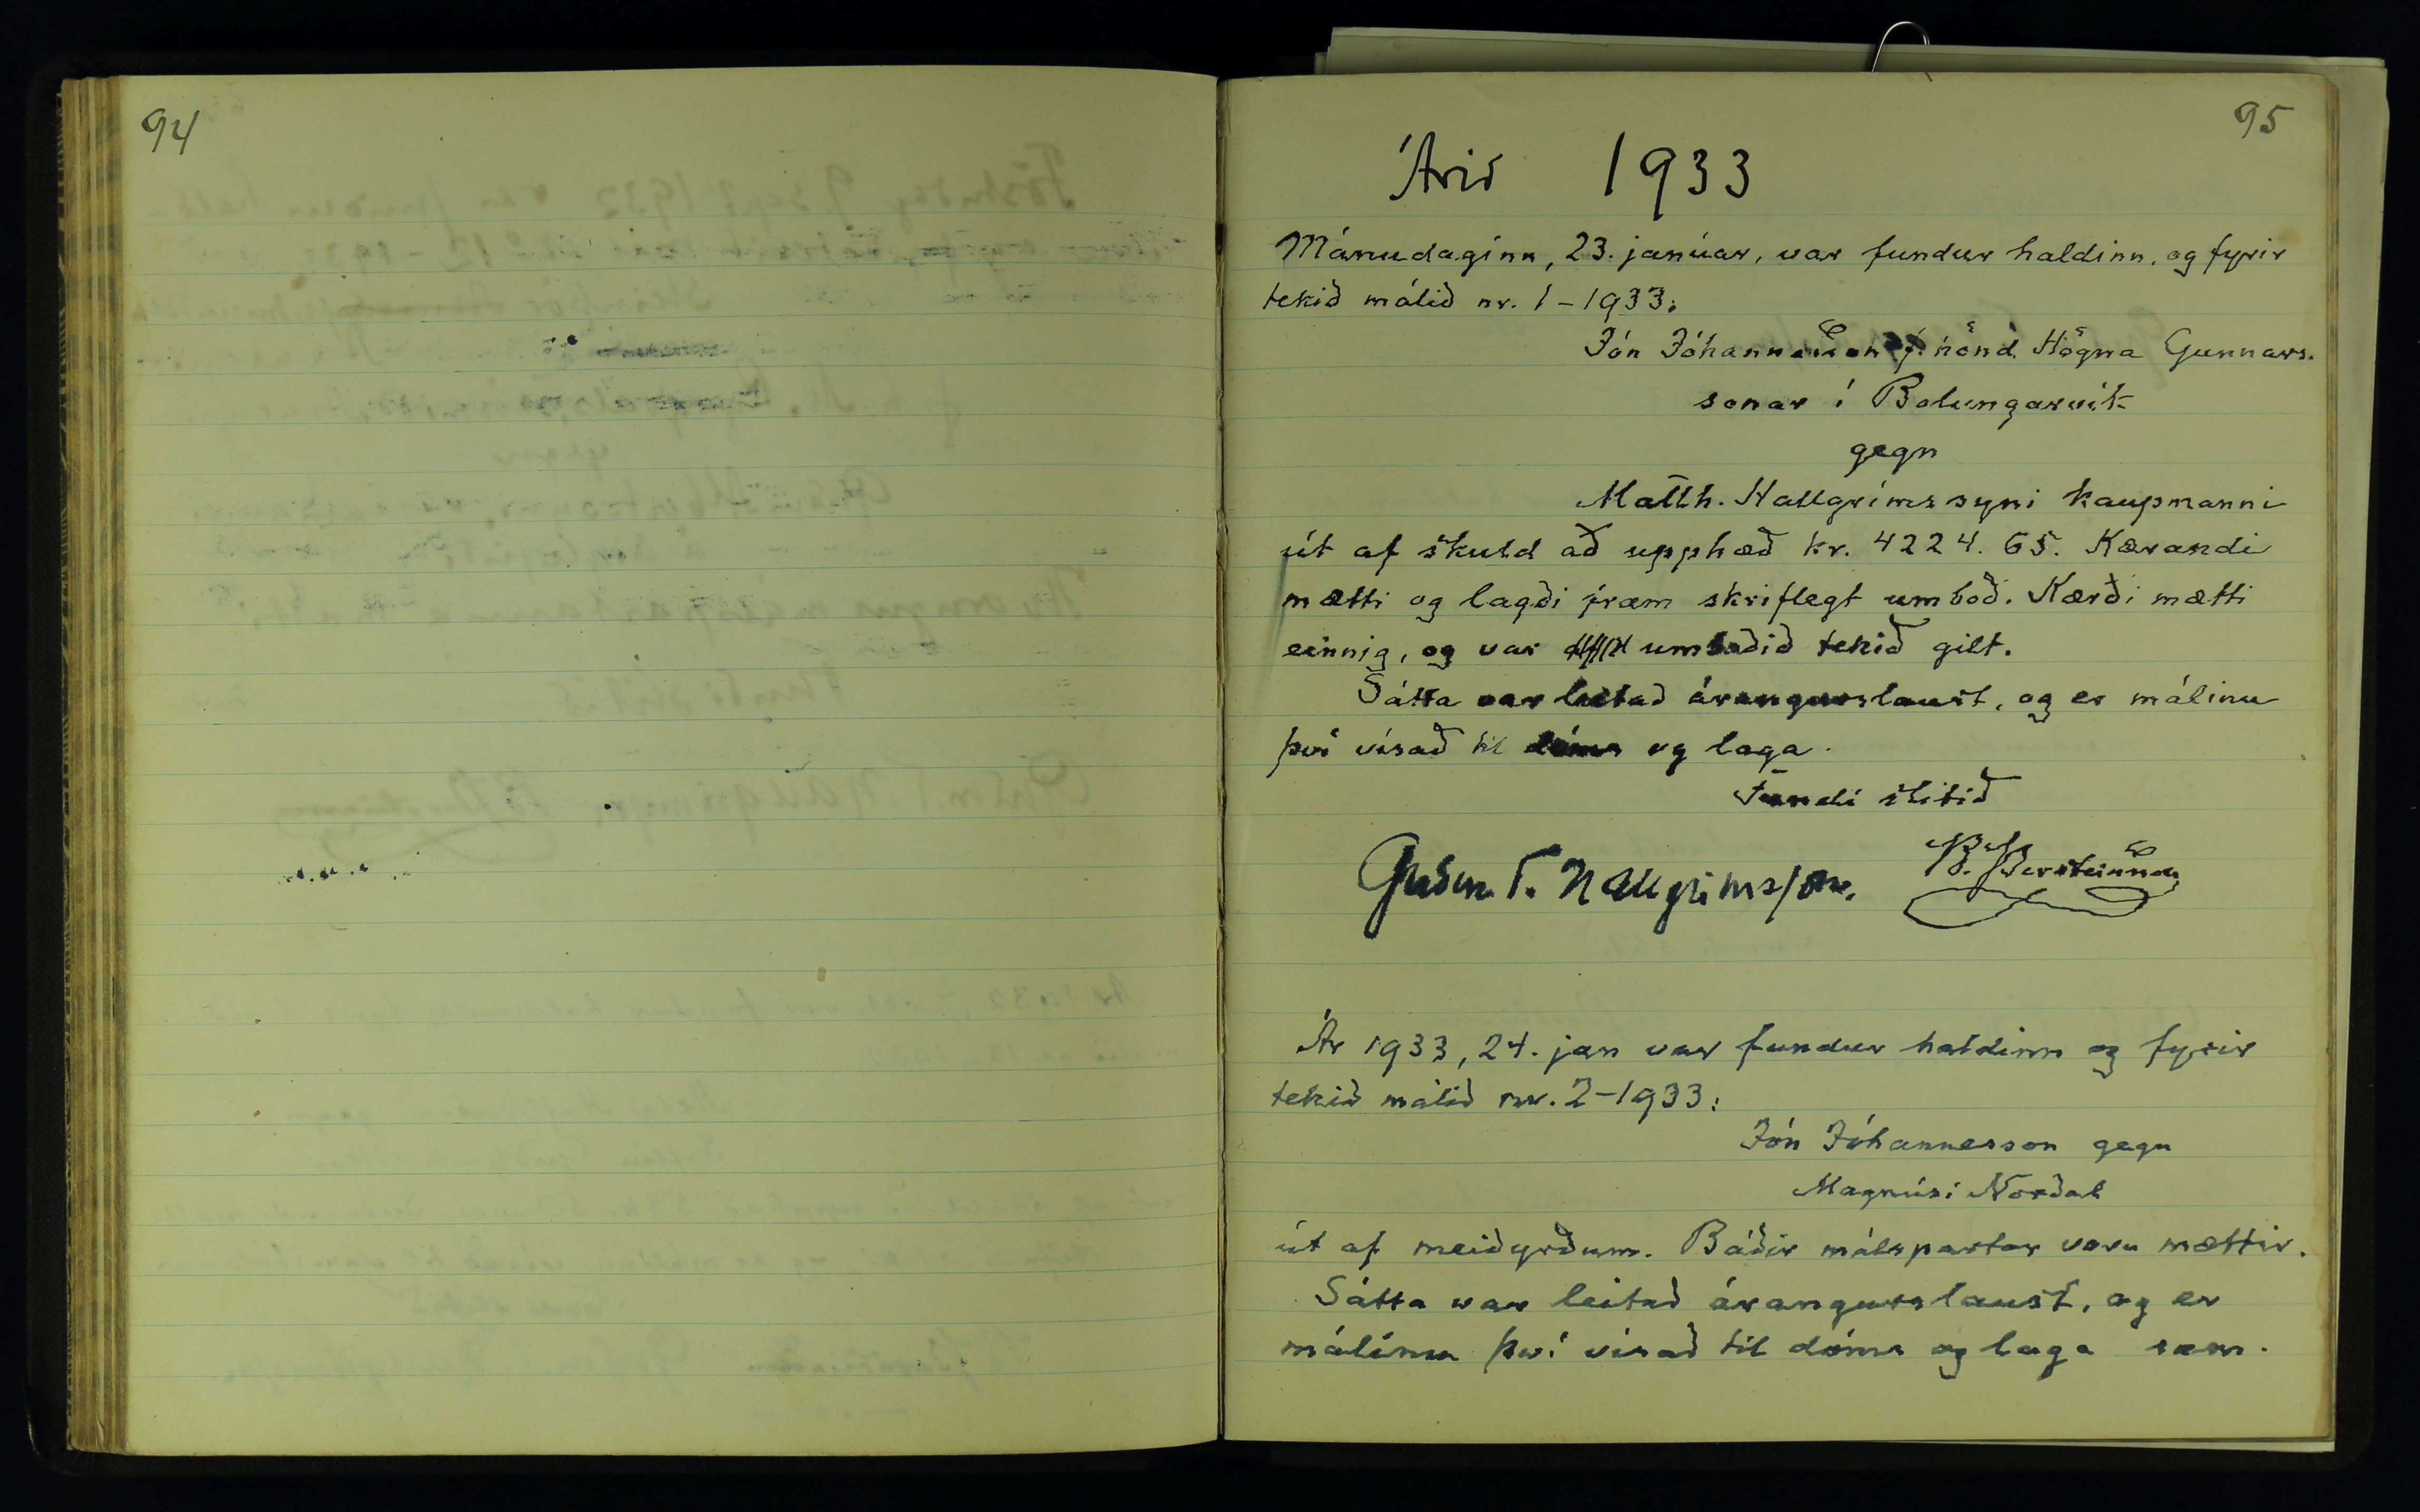 94
95
Árið 1933
Mánudaginn, 23. janúar, var fundur haldinn, og fyrir
tekið málið nr. 1-1933:
Jón Jóhannesson f. hönd Högna Gunnars-
sonar í Bolungarvík
gegn
Matth. Hallgrímssyni kaupmanni
út af skuld að upphæð kr. 4224.65. Kærandi
mætti og lagði fram skriflegt umboð. Kærði mætti
einnig, og var umboðið tekið gilt.
Sátta var leitað árangurslaust, og er málinu
því vísað til dóms og laga.
Fundi slitið
Guðm. T. Hallgrímsson. B. Þorsteinn
Ár 1933, 24. jan var fundur haldinn og fyrir
tekið málið nr. 2-1933:
Jón Jóhannesson gegn
Magnúsi Norðal
út af meiðyrðum. Báðir málspartar voru mættir.
Sátta var leitað árangurslaust, og er
málinu því vísað til dóms og laga sam-